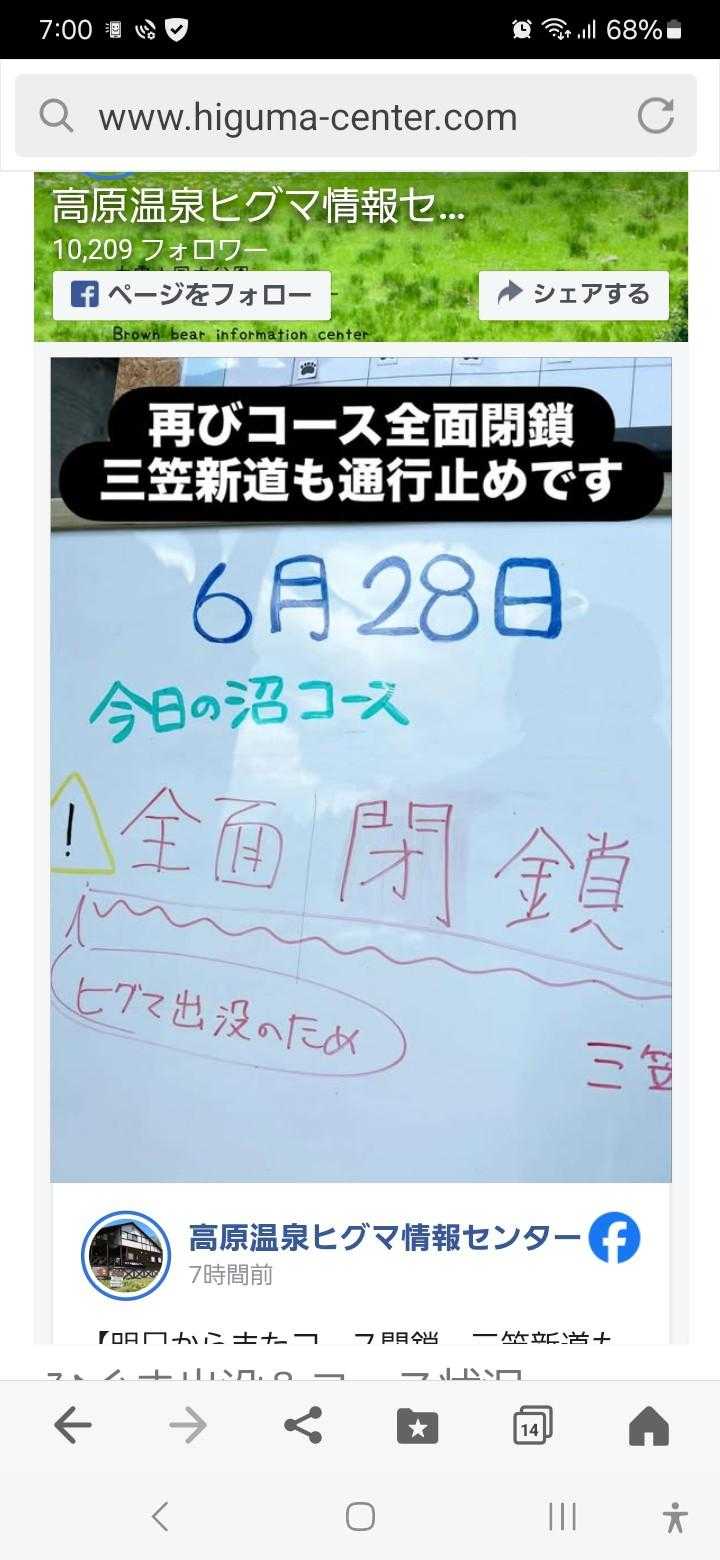 7:00
68%
www.higuma-center.com
高原温泉ヒグマ情報セ...
10,209 フォロワー
ページをフォロー
シェアする
Brown bear information center
再びコース全面閉鎖
三笠新道も通行止めです
6月28日
今日の沼コース
! 全面閉鎖
ヒグマ出没のため
三笠
高原温泉ヒグマ情報センター
7時間前
【明日からまたコース閉鎖
三笠新道も
14